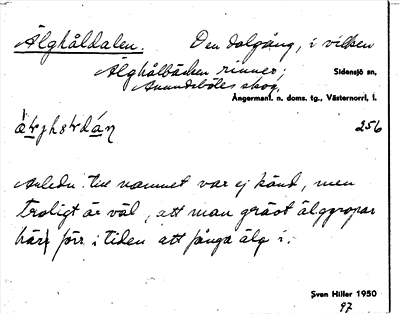 Älghåldalen. Den dalgång, i vilken
Älghålbäcken rinner;
Sidensjö sn,
Anundsböles skog,
Ångermanl. n. doms. tg., Västernorrl. l.
256
Anledn. till namnet var ej känd, men
troligt är väl, att man grävt älggropar
här förr i tiden att fånga älg i.
Sven Hiller 1950
97